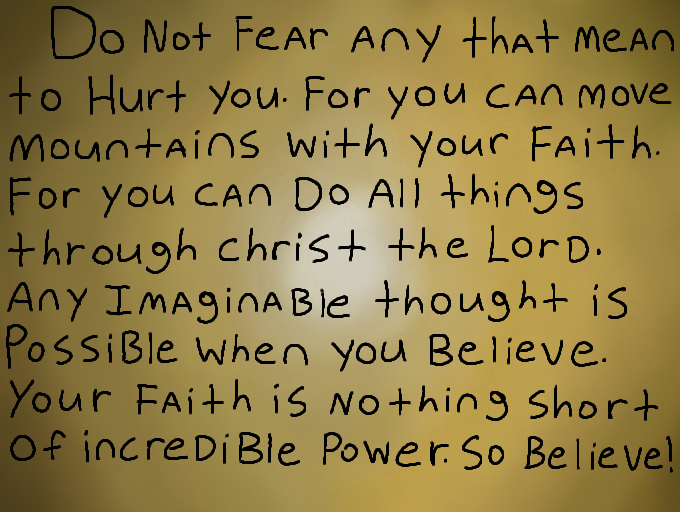 Do Not FeAr Any thAt meAn
to Hurt you. For you cAn move
mountAins with your FAith.
For you cAn Do All things
through christ the LorD.
Any ImAginABle thought is
PossiBle when you Believe.
Your FAith is Nothing short
Of increDiBle Power. So Believe!